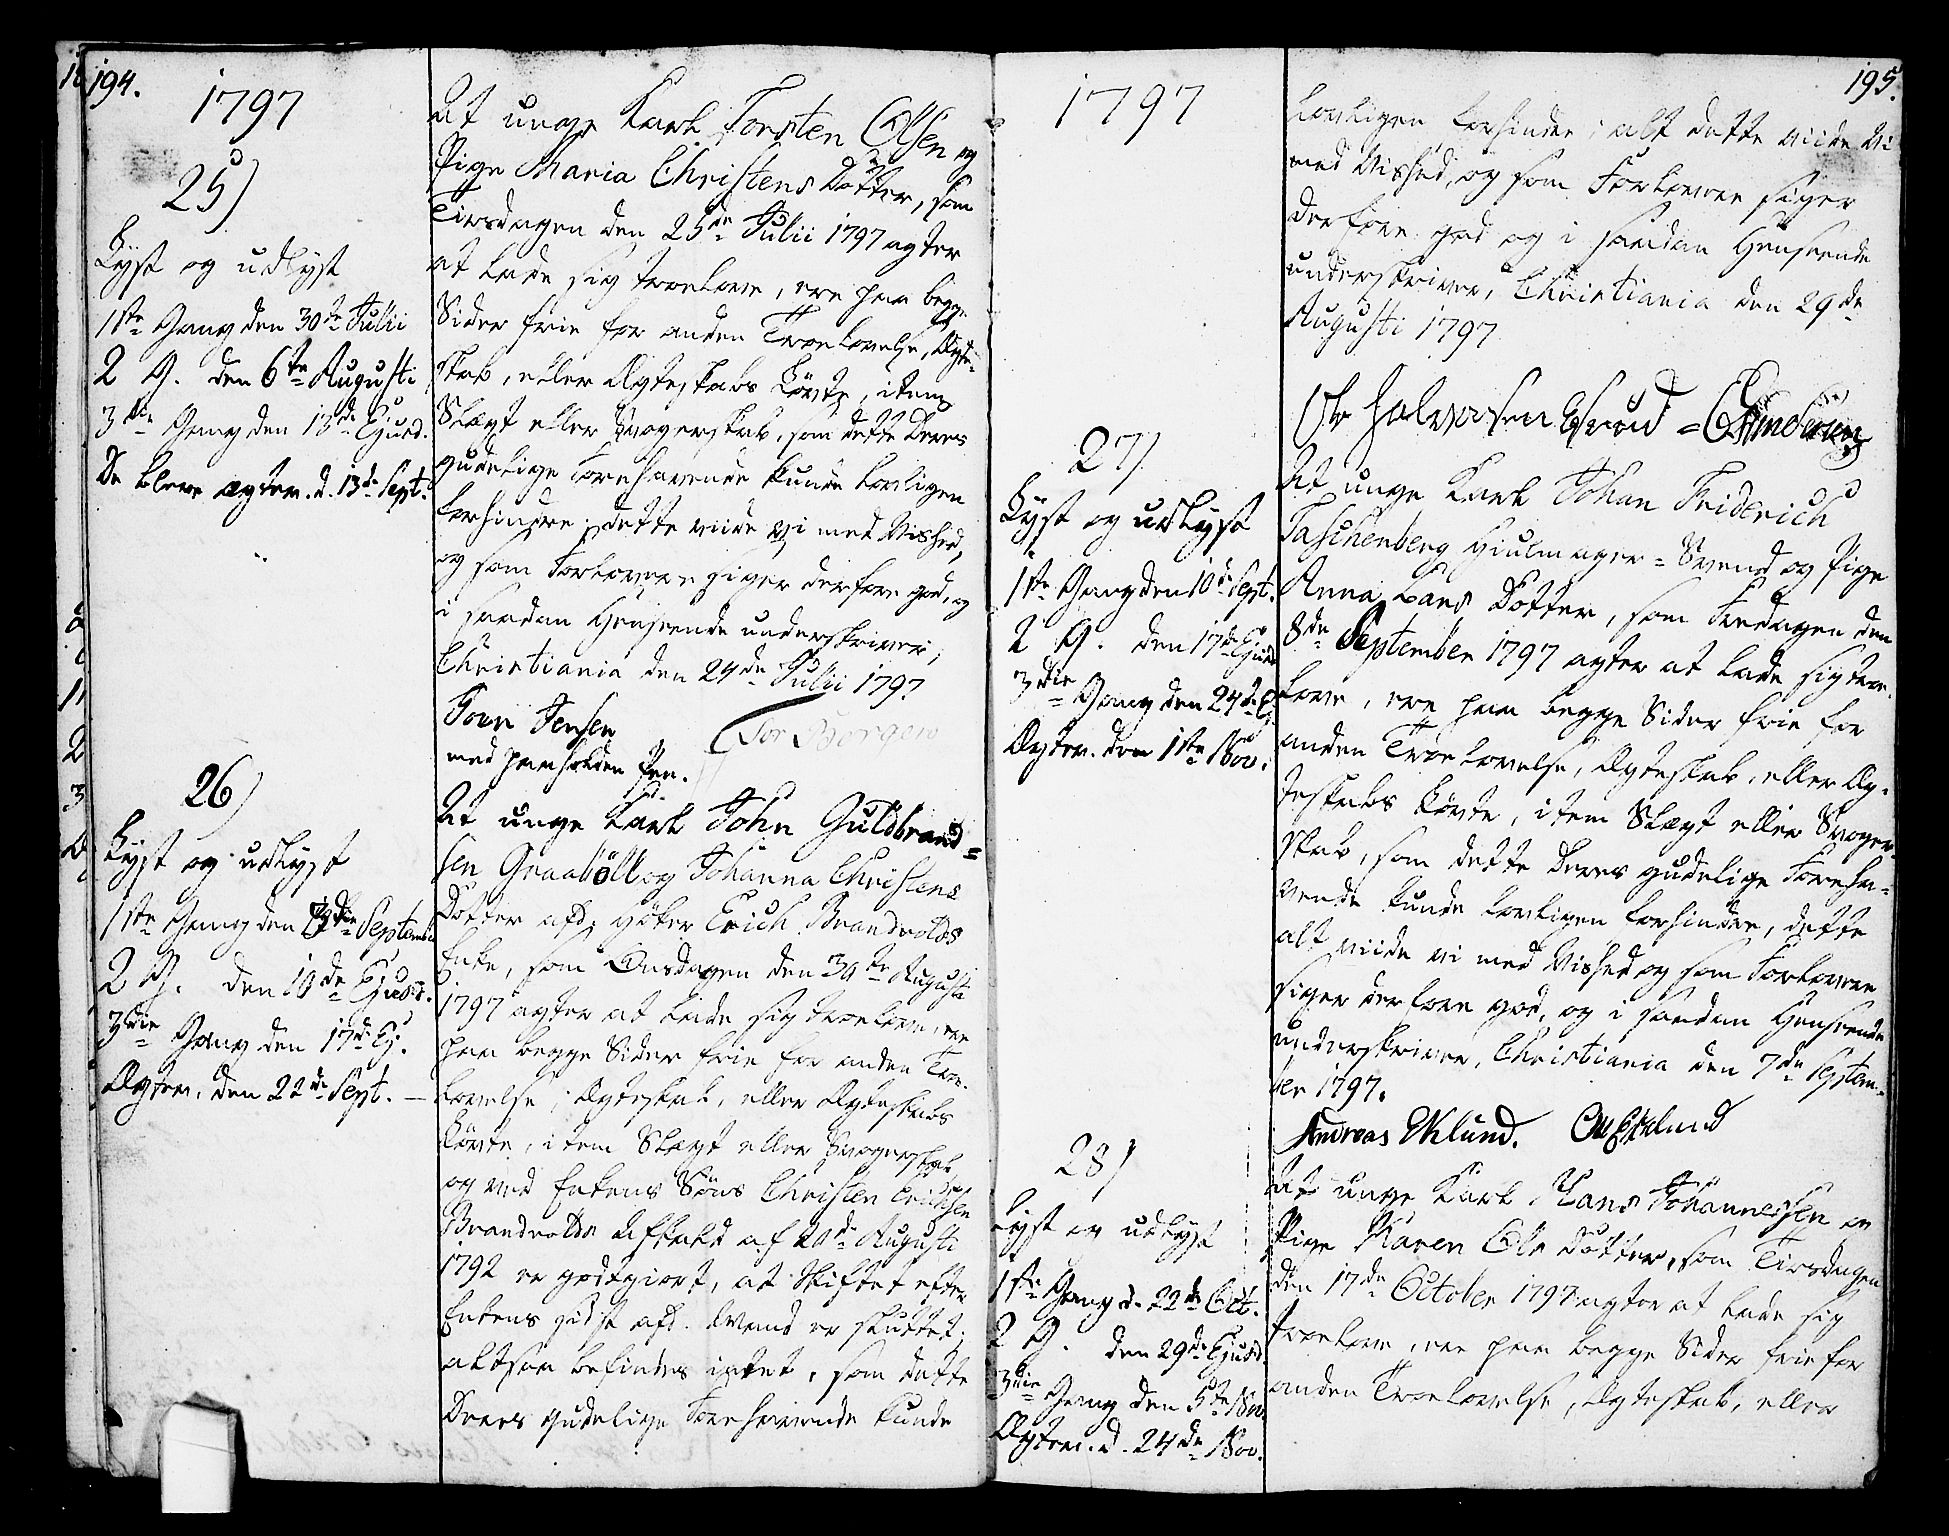 194.
1797
25)
Lyst og udlyst
1ste Gang den 30te Julii
2 G. den 6te Augusti
3die Gang den 13de Ejusd.
De bleve ægtev. d. 13de Sept.
26)
Lyst og udlyst
1ste Gang den 3die Septemb
2 G. den 10de Ejusd.
3die Gang den 17de Ej.
Ægtev. den 22de Sept. —
At unge Karl Torsten Olsen og
Pige Maria Christens Dotter, som
Tirsdagen den 25de Julii 1797 agter
at lade sig troelove, ere paa begge
Sider frie for anden Troelovelse, Ægte-
skab, eller Ægteskabs Løvte, item
Slægt eller Svogerskab, som dette Deres
gudelige Forehavende kunde lovligen
forhindre; dette viide vi med Vished,
og som Forlovere siger derfore god, og
i saadan Henseende underskriver;
Christiania den 24de Julii 1797
Jens Jensen
med paaholden Pen.
Tor Borgen
At unge Karl John Guldbrand=
sen Graabøl og Johanna Christens
Dotter afd: Erich Brandvolds
Enke, som Onsdagen den 30te Augusti
1797 agter at lade sig troelove, ere
paa begge Sider frie for anden Troe-
lovelse, Ægteskab, eller Ægteskabs
Løvte, item Slægt eller Svogerskab,
og ved Enkens Søns Christen Erichsen
Brandvolds Afkald af 20de Augusti
1792 er godtgiort, at Skiftet efter
Enkens sidst afd. Mand er sluttet;
altsaa befindes intet, som dette
Deres gudelige Forehavende kunde
195.
1797
27)
Lyst og udlyst
1ste Gang den 10de Sept.
2 G. den 17de Ejusd
3die Gang den 24de Ej.
Ægtev. den 1ste Nov.
28)
Lyst og udlyst
1ste Gang d. 22de Oct.
2 G. den 29de Ejusd.
3die Gang den 5te Nov.
Ægtev. d. 24de Nov.
lovligen forhindre; alt dette viide vi
med Vished, og som Forlovere siger
derfore god og i saadan Henseende
underskriver, Christiania den 29de
Augusti 1797
Ole Halvorsen
At unge Karl Johan Friderich
Taschenberg Hiulmager=Svend og Pige
Anna Lars Dotter, som Fredagen den
8de September 1797 agter at lade sig troe-
love, ere paa begge Sider frie for
anden Troelovelse, Ægteskab, eller Æg-
teskabs Løvte, item Slægt eller Svoger-
skab, som dette Deres gudelige Foreha-
vende kunde lovligen forhindre, dette
alt viide vi med Vished og som Forlovere
siger derfore god, og i saadan Henseende
underskriver, Christiania den 7de Septem-
ber 1797.
Andreas Eklund.
At unge Karl Hans Johannessen og
Pige Karen Ols Dotter, som Tirsdagen
den 17de October 1797 agter at lade sig
troelove, ere paa begge Sider frie for
anden Troelovelse, Ægteskab, eller